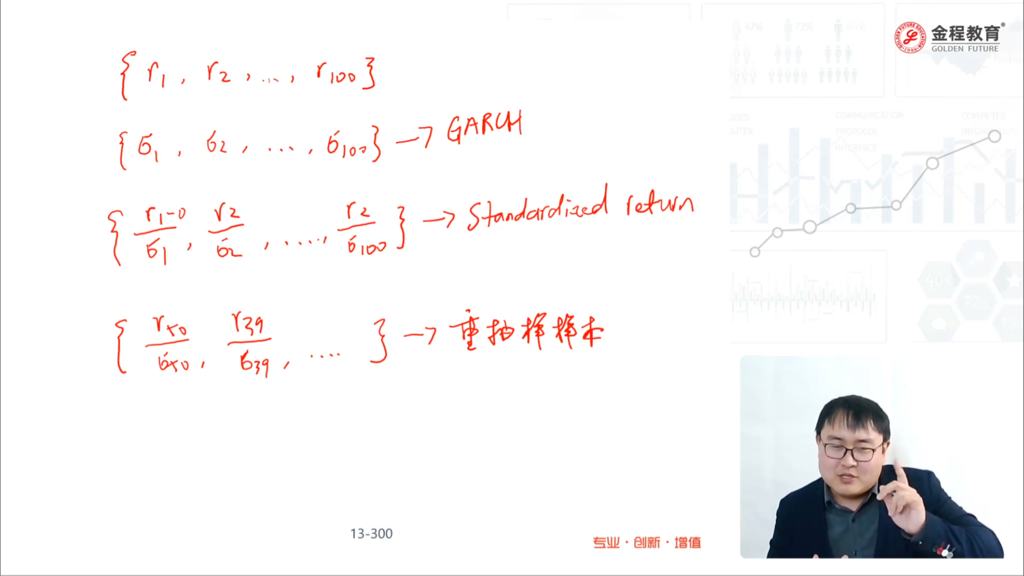 金程教育®
GOLDEN FUTURE
{ r₁ , r₂ , ... , r₁₀₀ }
{ σ₁ , σ₂ , ... , σ₁₀₀ } → GARCH
{ r₁-0/σ₁ , r₂/σ₂ , ..... , r₂/σ₁₀₀ } → Standardized return
{ r₅₀/σ₅₀ , r₃₉/σ₃₉ , .... } → 重抽样样本
13-300
专业·创新·增值